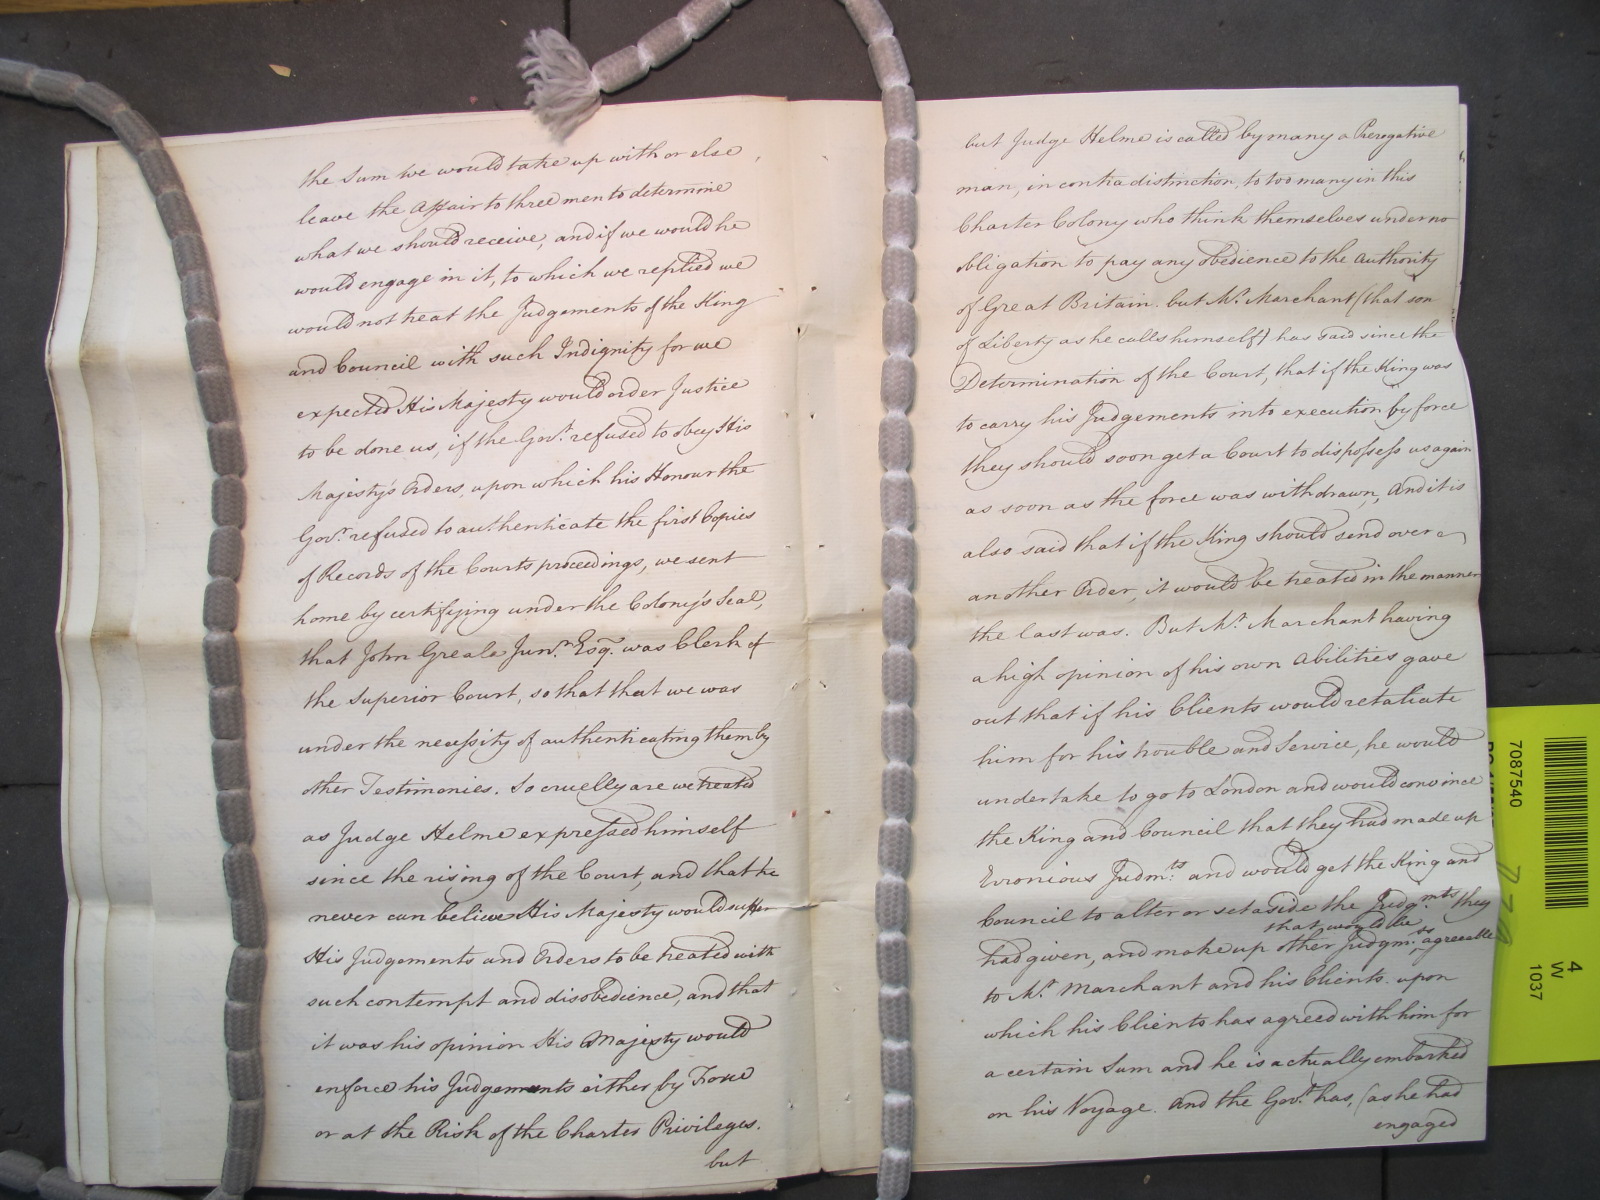 the Sum we would take up with or else
leave the Affair to three men to determine
what we should receive, and if we would he
would engage in it, to which we replied we
would not treat the Judgements of the King
and Council with such Indignity for we
expected His Majesty would order Justice
to be done us, if the Govr. refused to obey His
Majesty's Orders, upon which his Honour the
Govr. refused to authenticate the first Copies
of Records of the Courts proceedings, we sent
home by certifying under the Colony's Seal,
that John Greale Junr. Esqr. was Clerk of
the Superior Court, so that that we was
under the necessity of authenticating them by
other Testimonies. So cruelly are we treated
as Judge Helme expressed himself
since the rising of the Court, and that he
never can believe His Majesty would suffer
His Judgements and Orders to be treated with
such contempt and disobedience, and that
it was his opinion His Majesty would
enforce his Judgements either by Force
or at the Risk of the Charter Privileges.
but
but Judge Helme is called by many a Prerogative
man, in contradistinction, to too many in this
Charter Colony who think themselves under no
obligation to pay any obedience to the Authority
of Great Britain. but Mr. Marchant (that son
of Liberty as he calls himself) has said since the
Determination of the Court, that if the King was
to carry his Judgements into execution by force
they should soon get a Court to dispossess us again
as soon as the force was withdrawn, And it is
also said that if the King should send over
another Order, it would be treated in the manner
the last was. But Mr. Marchant having
a high opinion of his own Abilities gave
out that if his Clients would retaliate
him for his trouble and Service, he would
undertake to go to London and would convince
the King and Council that they had made up
Erronious Judmts. and would get the King and
Council to alter or set aside the Judgmts they
that would be
had given, and make up other Judgmts. agreeable
to Mr. Marchant and his Clients. upon
which his Clients has agreed with him for
a certain Sum and he is actually embarked
on his Voyage. And the Govr. has, (as he had
engaged
7087540
4
W
1037